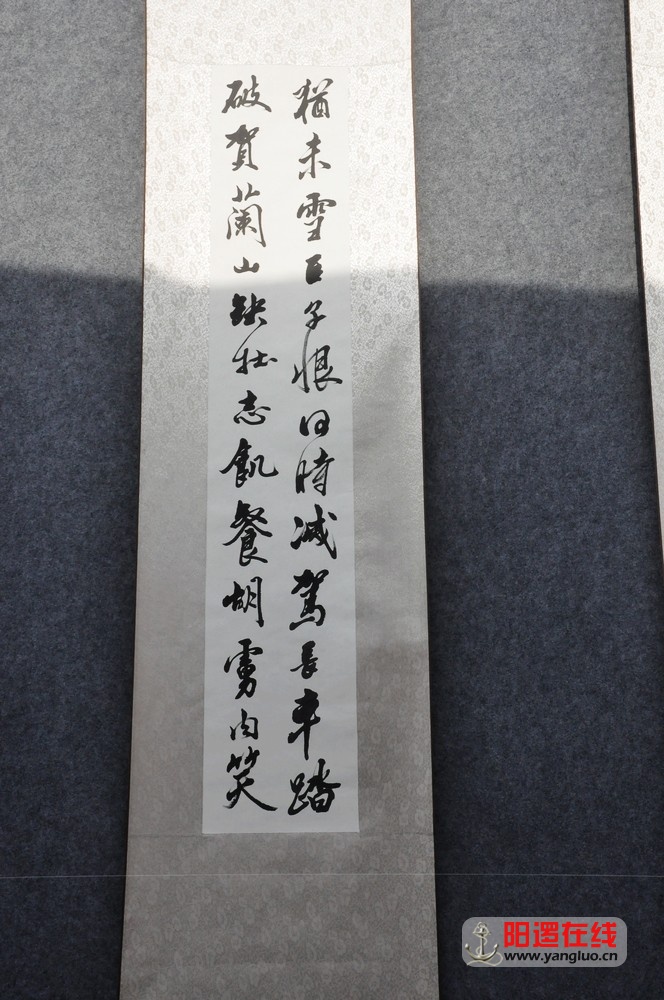 猶未雪臣子恨何時滅駕長車踏
破賀蘭山缺壯志飢餐胡虜肉笑
阳逻在线
www.yangluo.cn